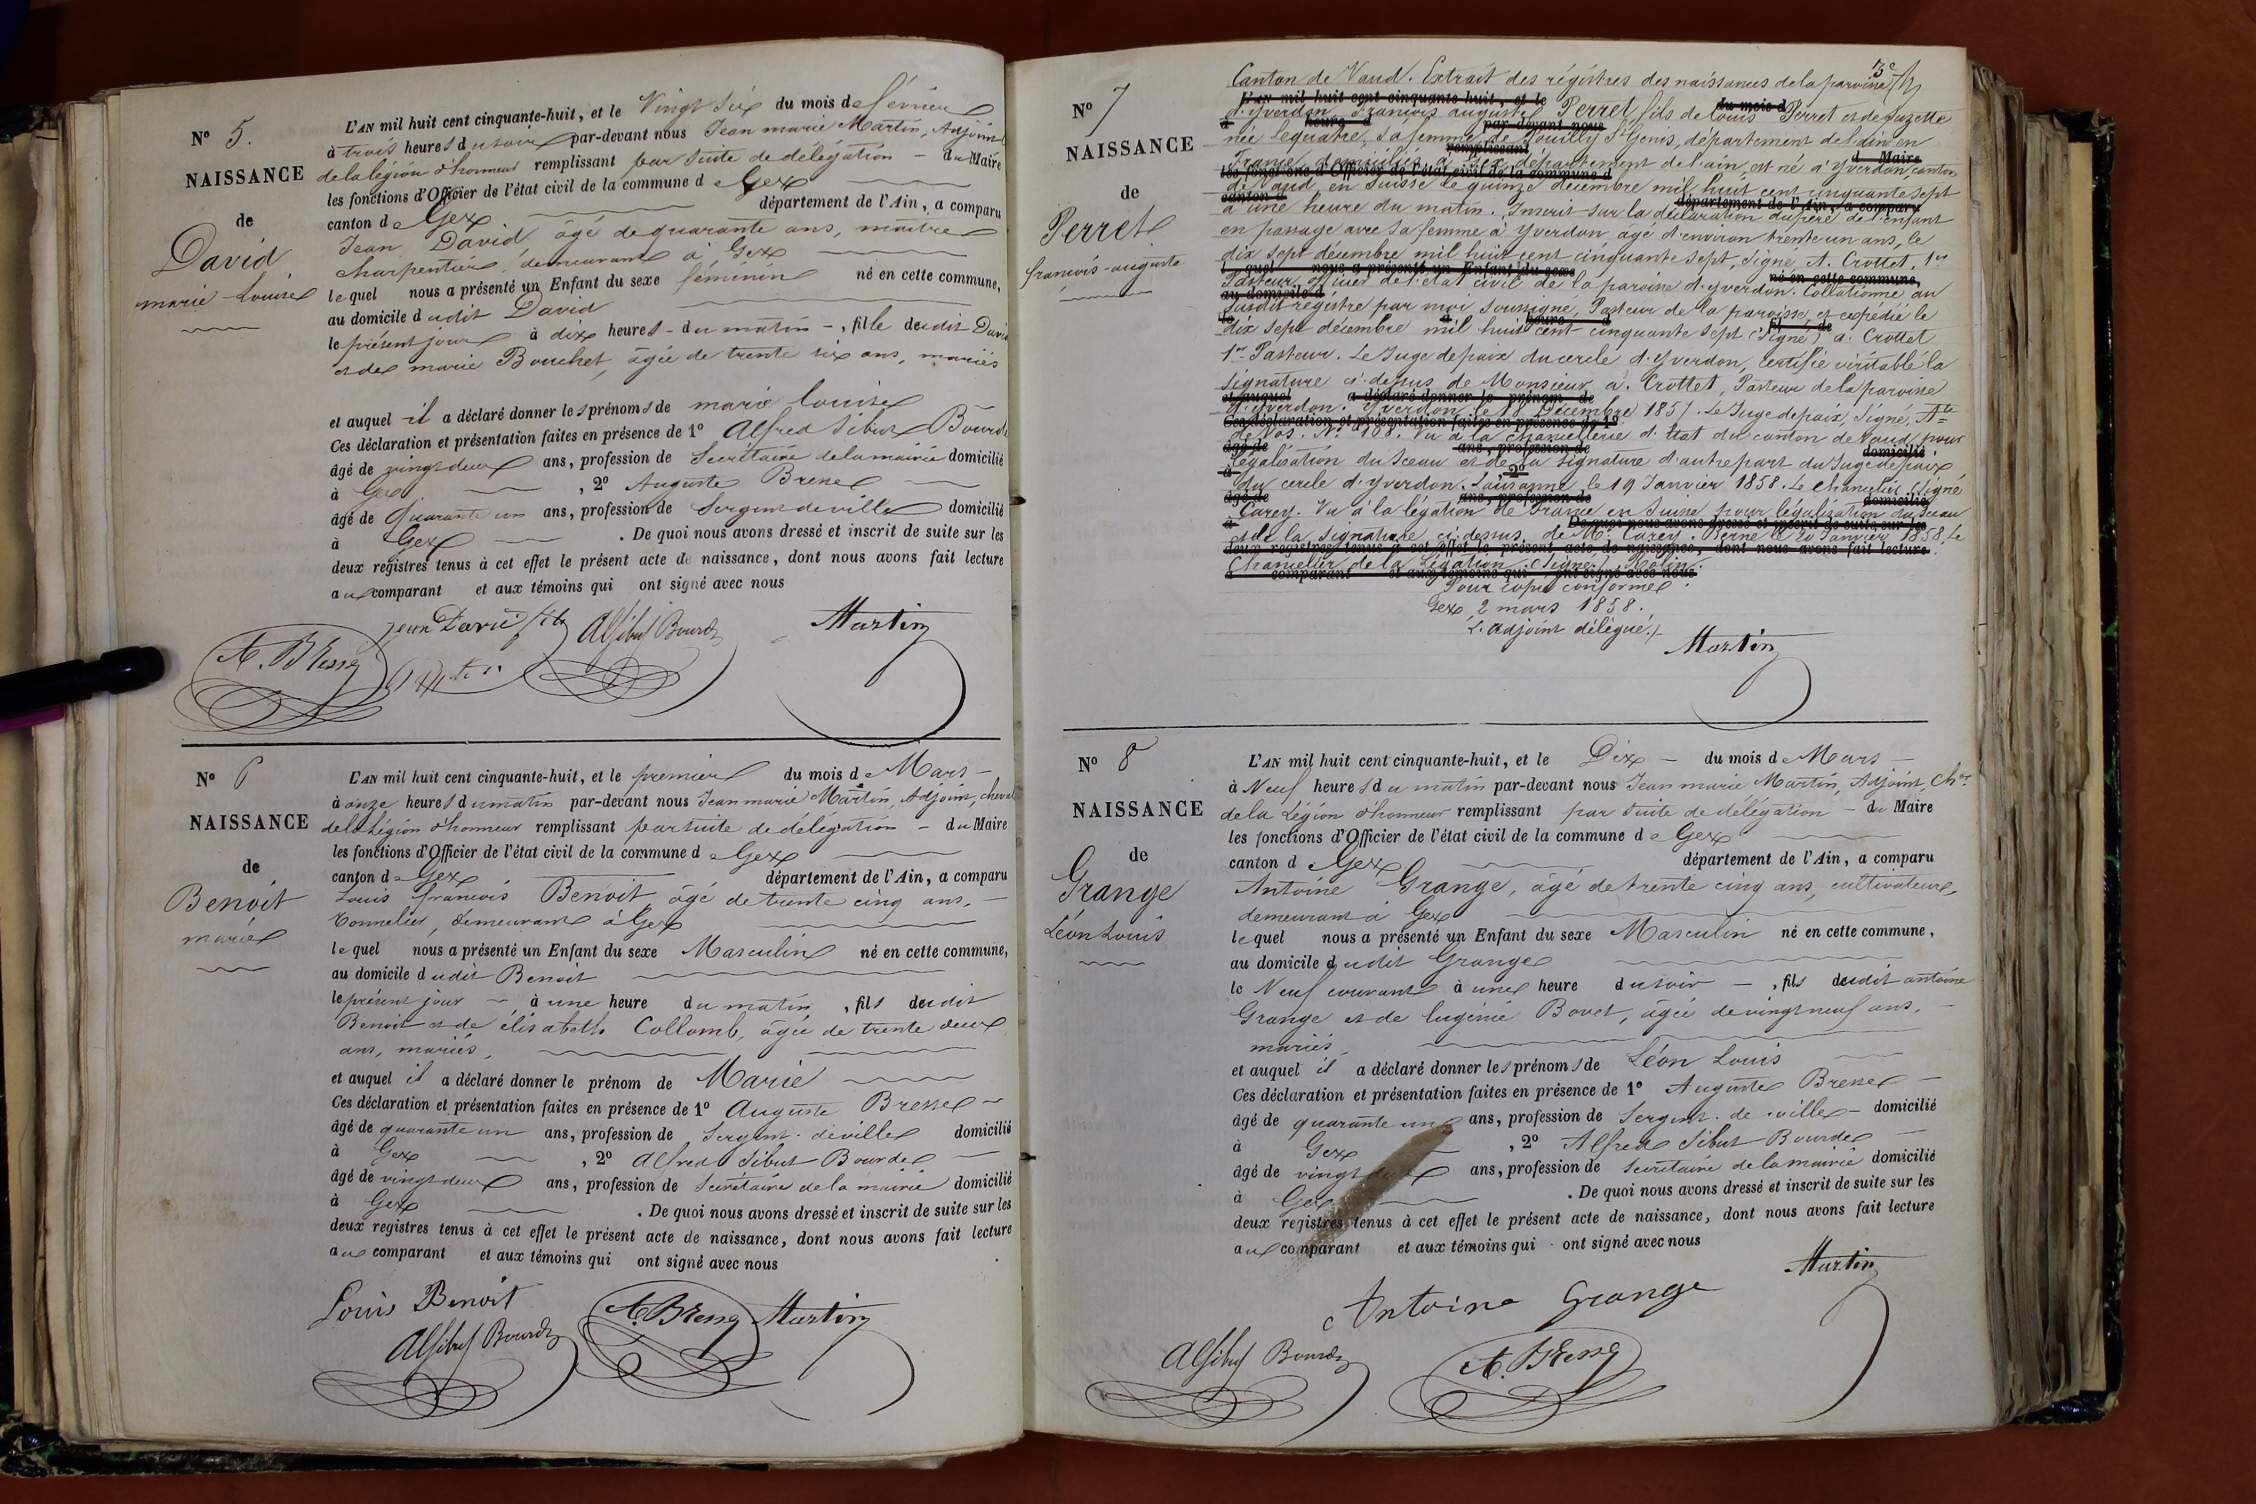 N° 5.
NAISSANCE
de
David
marie Louise
L'AN mil huit cent cinquante-huit, et le Vingt six du mois de février
à trois heures du soir par-devant nous Jean marie Martin, Adjoint
de la légion d'honneur remplissant par suite de délégation – du Maire
les fonctions d'Officier de l'état civil de la commune de Gex
canton de Gex département de l'Ain, a comparu
Jean David âgé de quarante ans, maître
charpentier, demeurant à Gex
lequel nous a présenté un Enfant du sexe féminin né en cette commune,
au domicile dudit David
le présent jour à dix heures - du matin -, fille dudit David
et de marie Bouchet, âgée de trente six ans, mariés
et auquel il a déclaré donner les prénoms de marie louise
Ces déclaration et présentation faites en présence de 1° Alfred Sibut Bourde
âgé de vingt deux ans, profession de Secrétaire de la mairie domicilié
à Gex , 2° Auguste Bressel
âgé de Quarante un ans, profession de Sergent de ville domicilié
à Gex . De quoi nous avons dressé et inscrit de suite sur les
deux registres tenus à cet effet le présent acte de naissance, dont nous avons fait lecture
aux comparant et aux témoins qui ont signé avec nous
jean David
Alf Sibut Bourde
Martin
A. Bresse
N° 6
NAISSANCE
de
Benoit
marie
L'AN mil huit cent cinquante-huit, et le premier du mois de Mars –
à onze heures du matin par-devant nous Jean marie Martin, Adjoint, cheval
de la Légion d'honneur remplissant par suite de délégation – du Maire
les fonctions d'Officier de l'état civil de la commune de Gex
canton de Gex département de l'Ain, a comparu
Louis françois Benoit, âgé de trente cinq ans, –
Tonnelier, demeurant à Gex
lequel nous a présenté un Enfant du sexe Masculin né en cette commune,
au domicile dudit Benoit
le présent jour – à une heure du matin, fils dudit
Benoit et de élisabeth Collomb, âgée de trente deux
ans, mariés,
et auquel il a déclaré donner le prénom de Marie
Ces déclaration et présentation faites en présence de 1° Auguste Bressel –
âgé de quarante un ans, profession de Sergent de ville domicilié
à Gex , 2° Alfred Sibut Bourde
âgé de vingt deux ans, profession de Secrétaire de la mairie domicilié
à Gex . De quoi nous avons dressé et inscrit de suite sur les
deux registres tenus à cet effet le présent acte de naissance, dont nous avons fait lecture
aux comparant et aux témoins qui ont signé avec nous
Louis Benoit
A. Bresse Martin
Alf Sibut Bourde
N° 7
NAISSANCE
de
Perret
françois-auguste
Canton de Vaud. Extrait des régistres des naissances de la paroisse
L'AN mil huit cent cinquante-huit, et le du mois d
d'Yverdon. françois auguste Perret, fils de Louis Perret et de Suzette
à heure d par-devant nous
née Lequatre, sa femme, de Pouilly St Genis, département de l'ain en
remplissant d Maire
France, domiciliés à Gex département de l'ain, est né à Yverdon, canton
les fonctions d'Officier de l'état civil de la commune d
de Vaud, en Suisse le quinze décembre mil huit cent cinquante sept
canton d département de l'Ain, a comparu
à une heure du matin. Inscrit sur la déclaration du père de l'enfant
en passage avec sa femme à Yverdon âgé d'environ trente un ans, le
dix sept décembre mil huit cent cinquante sept, Signé, A. Crottet, 1er
lequel nous a présenté un Enfant du sexe né en cette commune,
Pasteur, officier de l'état civil de la paroisse d'yverdon. Collationné au
au domicile d
susdit régistre par moi soussigné, Pasteur de la paroisse, et expédié le
le à heure d fil de
dix sept décembre mil huit cent cinquante sept (Signé) a. Crottet
1er Pasteur. Le Juge de paix du cercle d'Yverdon, certifie véritable la
signature ci-dessus de Monsieur a. Crottet, Pasteur de la paroisse
et auquel a déclaré donner le prénom de
d'Yverdon. Yverdon le 18 Décembre 1857. Le Juge de paix, Signé,
Ces déclaration et présentation faites en présence de 1°
N° 168. Vu à la chancellerie d'Etat du canton de Vaud, pour
âgé de ans, profession de domicilié
légalisation du sceau et de la signature d'autre part du Juge de paix
à 2°
du cercle d'Yverdon. Lausanne, le 19 Janvier 1858. Le Chancelier (Signé
âgé de ans, profession de domicilié
Carey. Vu à la légation de France en Suisse pour légalization du sceau
à De quoi nous avons dressé et inscrit de suite sur les
et de la signature ci-dessus de Mr Carey. Berne le 20 Janvier 1858. Le
deux registres tenus à cet effet le présent acte de naissance, dont nous avons fait lecture
Chancelier de la Légation. (Signé)
a comparant et aux témoins qui ont signé avec nous
Pour copie conforme
Gex, 2 mars 1858.
L'adjoint délégué
Martin
N° 8
NAISSANCE
de
Grange
Léon Louis
L'AN mil huit cent cinquante-huit, et le Dix – du mois de Mars –
à Neuf heures du matin par-devant nous Jean marie Martin, Adjoint, Cher
de la Légion d'honneur remplissant par suite de délégation – du Maire
les fonctions d'Officier de l'état civil de la commune de Gex
canton de Gex département de l'Ain, a comparu
Antoine Grange, âgé de trente cinq ans, cultivateur,
demeurant à Gex
lequel nous a présenté un Enfant du sexe Masculin né en cette commune,
au domicile dudit Grange
le Neuf courant à une heure du soir –, fils dudit antoine
Grange et de Eugénie Bovet, âgée de vingt neuf ans,
mariés
et auquel il a déclaré donner les prénoms de Léon Louis
Ces déclaration et présentation faites en présence de 1° Auguste Bressel –
âgé de quarante un ans, profession de Sergent de ville – domicilié
à Gex , 2° Alfred Sibut Bourde
âgé de vingt deux ans, profession de Secrétaire de la mairie domicilié
à Gex . De quoi nous avons dressé et inscrit de suite sur les
deux registres tenus à cet effet le présent acte de naissance, dont nous avons fait lecture
aux comparant et aux témoins qui ont signé avec nous
Martin
Antoine Grange
Alf Sibut Bourde
A. Bresse